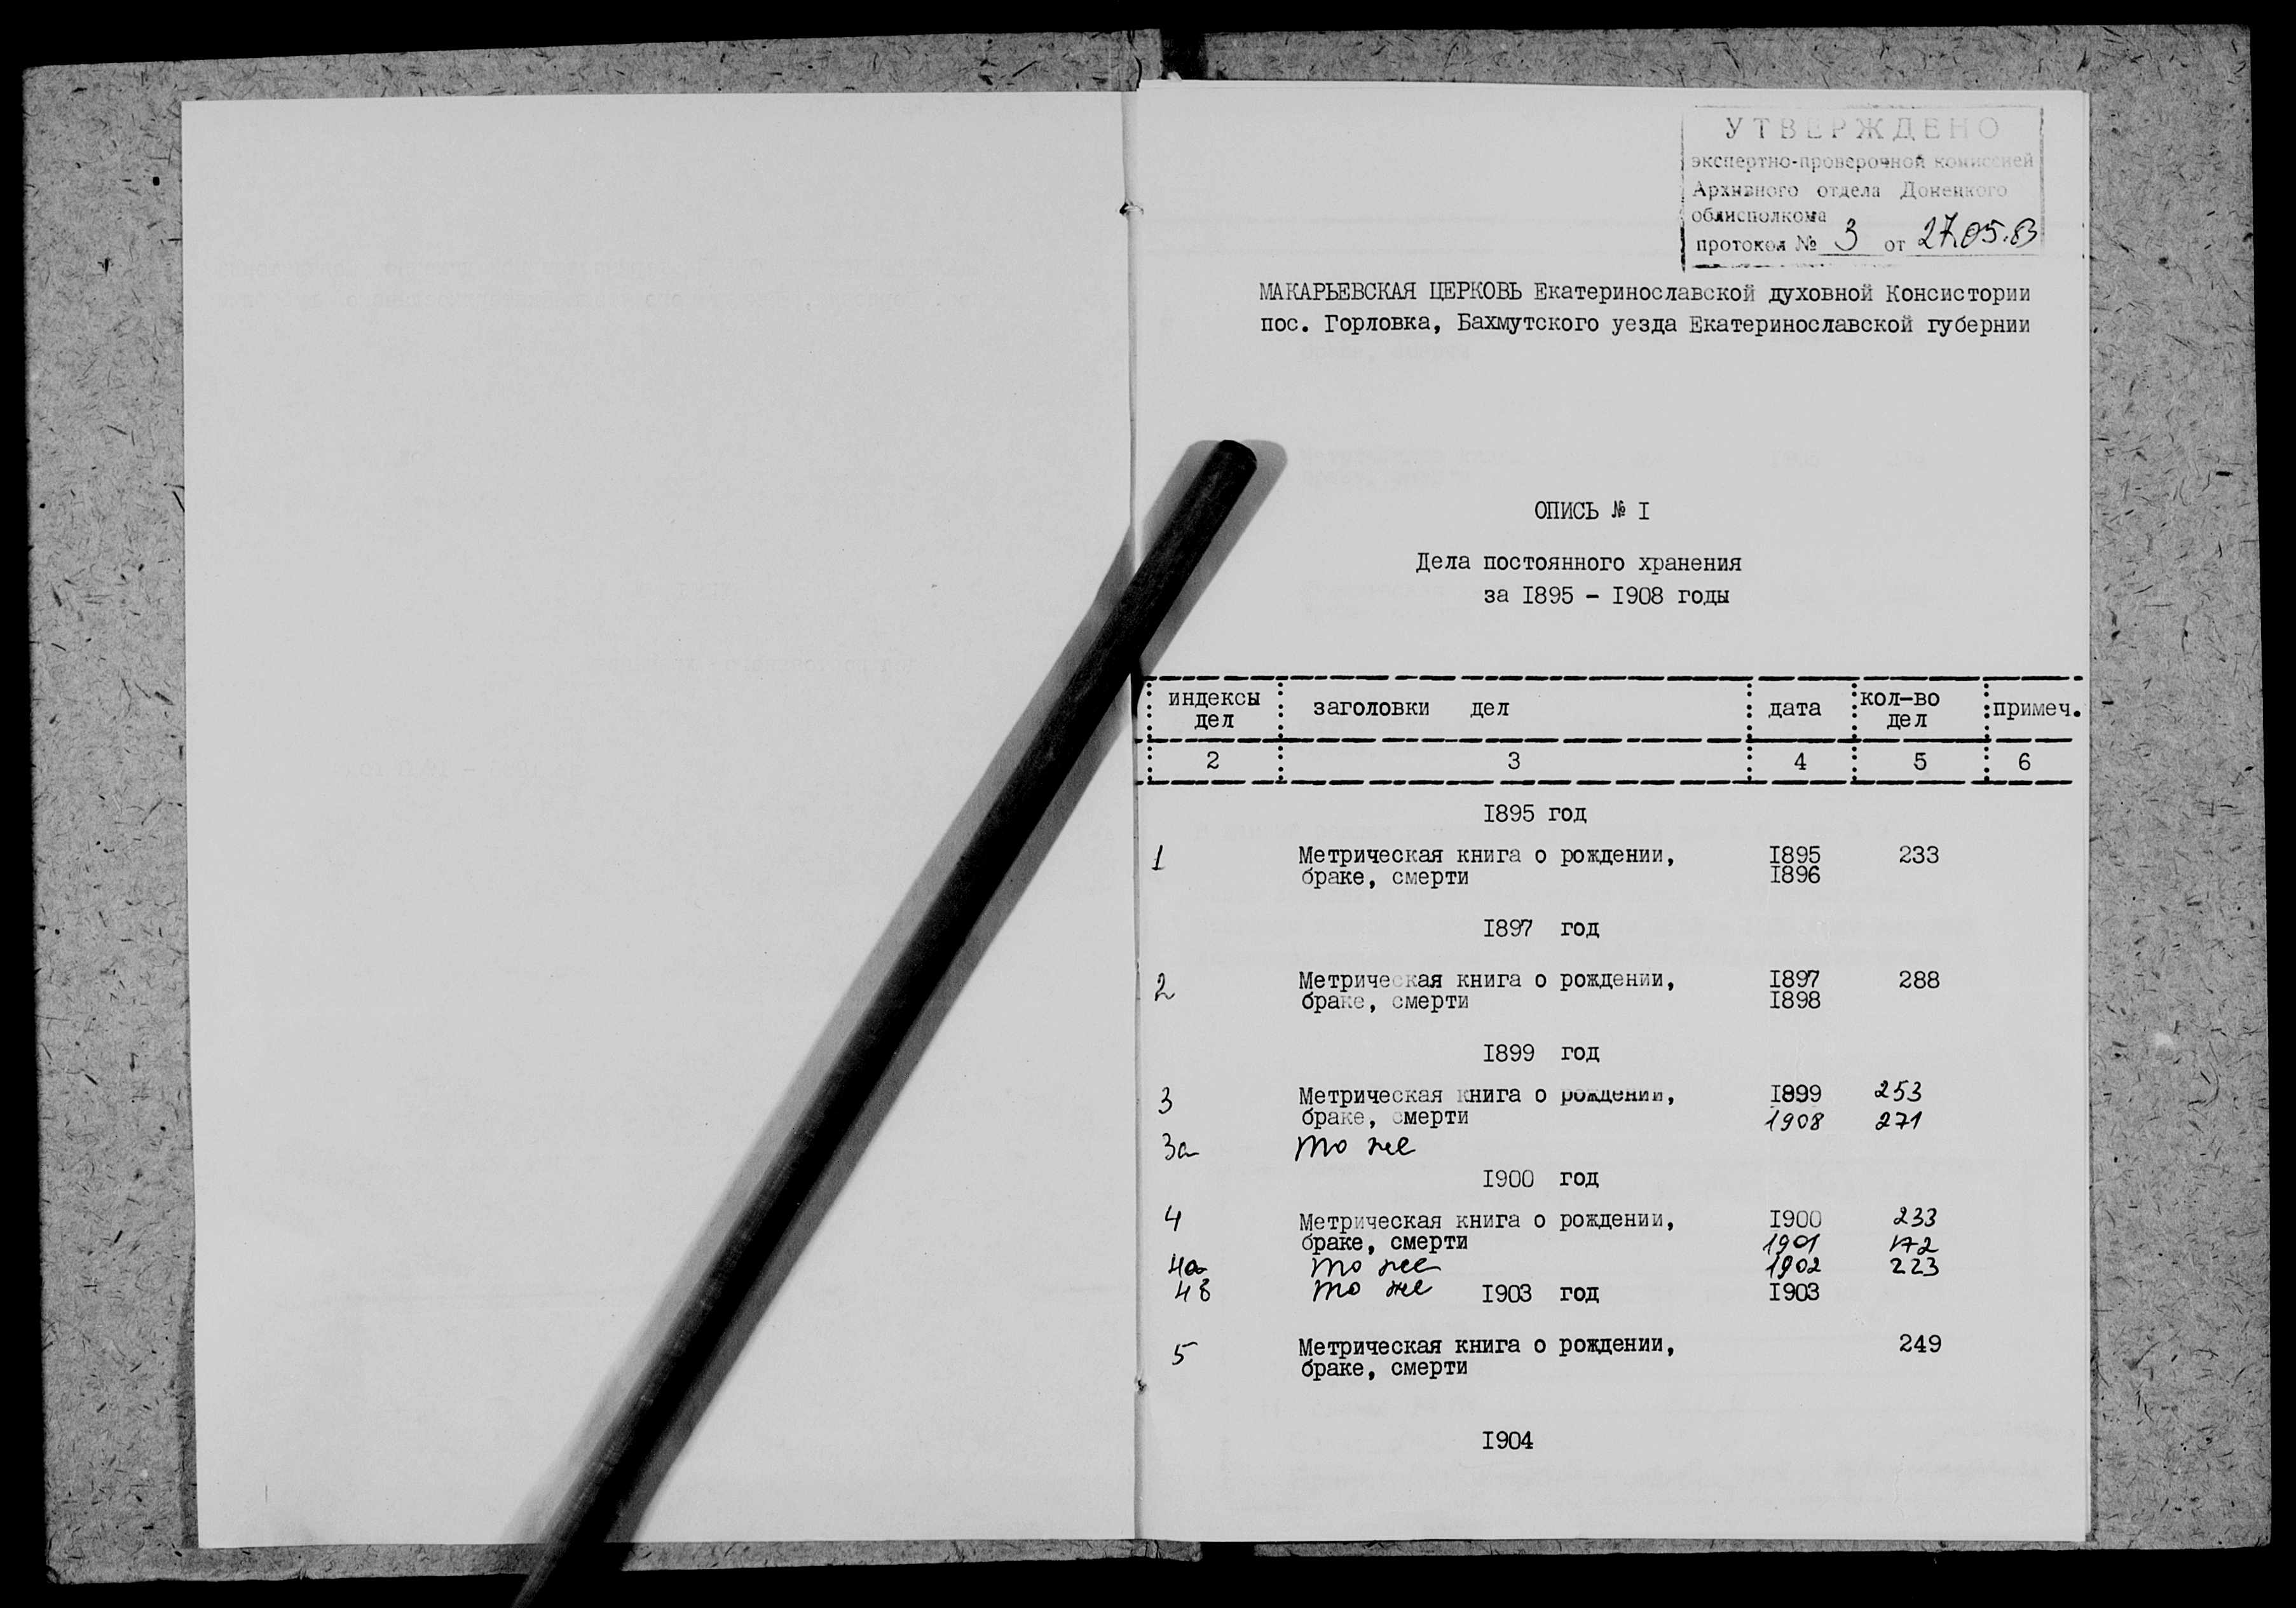 УТВЕРЖДЕНО
экспертно-проверочной комиссией
Архивного отдела Донецкого
облисполкома
протокол № 3 от 27.05.83
МАКАРЬЕВСКАЯ ЦЕРКОВЬ Екатеринославской духовной Консистории
пос. Горловка, Бахмутского уезда Екатеринославской губернии
ОПИСЬ № I
Дела постоянного хранения
за I895 - I908 годы
индексы дел заголовки дел дата кол-во дел примеч.
2 3 4 5 6
I895 год
1 Метрическая книга о рождении, I895 233
браке, смерти I896
I897 год
2 Метрическая книга о рождении, I897 288
браке, смерти I898
I899 год
3 Метрическая книга о рождении, I899 253
браке, смерти 1908 271
3а то же
I900 год
4 Метрическая книга о рождении, I900 233
браке, смерти 1901 172
4а то же 1902 223
4в то же I903 год I903
5 Метрическая книга о рождении, 249
браке, смерти
I904